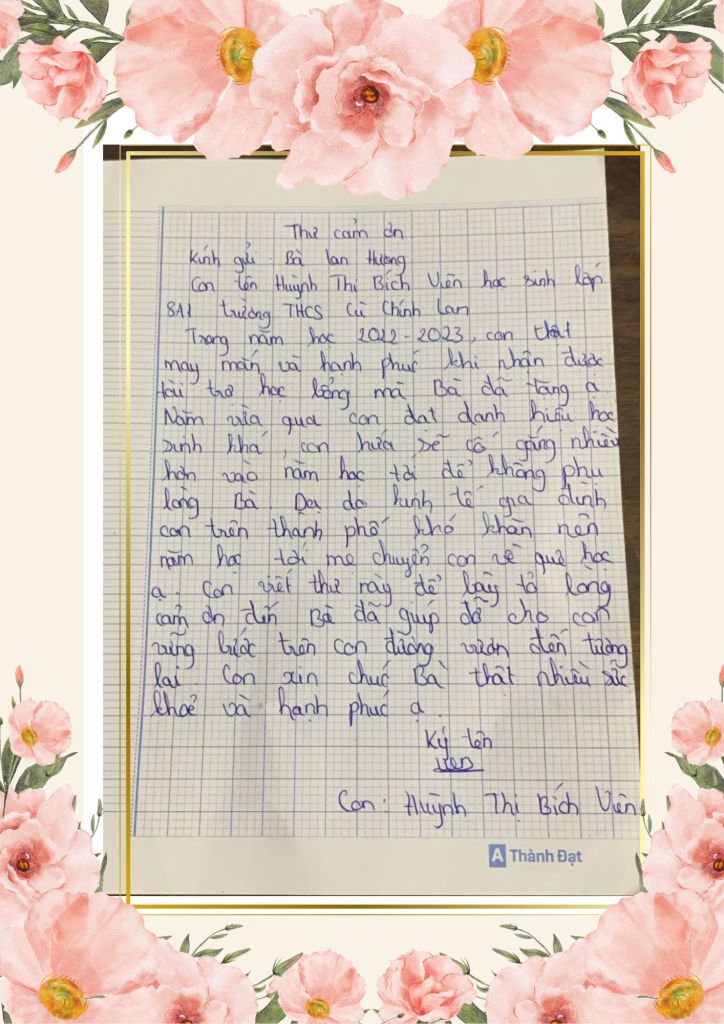 Thư cảm ơn
Kính gửi : Bà Lan Hương
Con tên Huỳnh Thị Bích Viên học sinh lớp
8A1 trường THCS Cù Chính Lan
Trong năm học 2022 - 2023, con thật
may mắn và hạnh phúc khi nhận được
tài trợ học bổng mà Bà đã tặng ạ.
Năm vừa qua con đạt danh hiệu học
sinh khá, con hứa sẽ cố gắng nhiều
hơn vào năm học tới để không phụ
lòng Bà. Dạ do kinh tế gia đình
con trên thành phố khó khăn nên
năm học tới mẹ chuyển con về quê học
ạ. Con viết thư này để bày tỏ lòng
cảm ơn đến Bà đã giúp đỡ cho con
vững bước trên con đường vươn đến tương
lai. Con xin chúc Bà thật nhiều sức
khoẻ và hạnh phúc ạ.
Ký tên
Con : Huỳnh Thị Bích Viên
A Thành Đạt